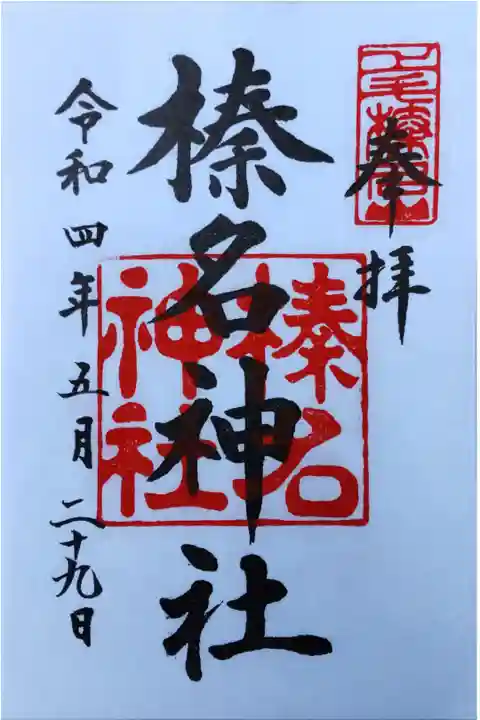 奉拝
榛名神社
榛名
神社
令和四年五月二十九日